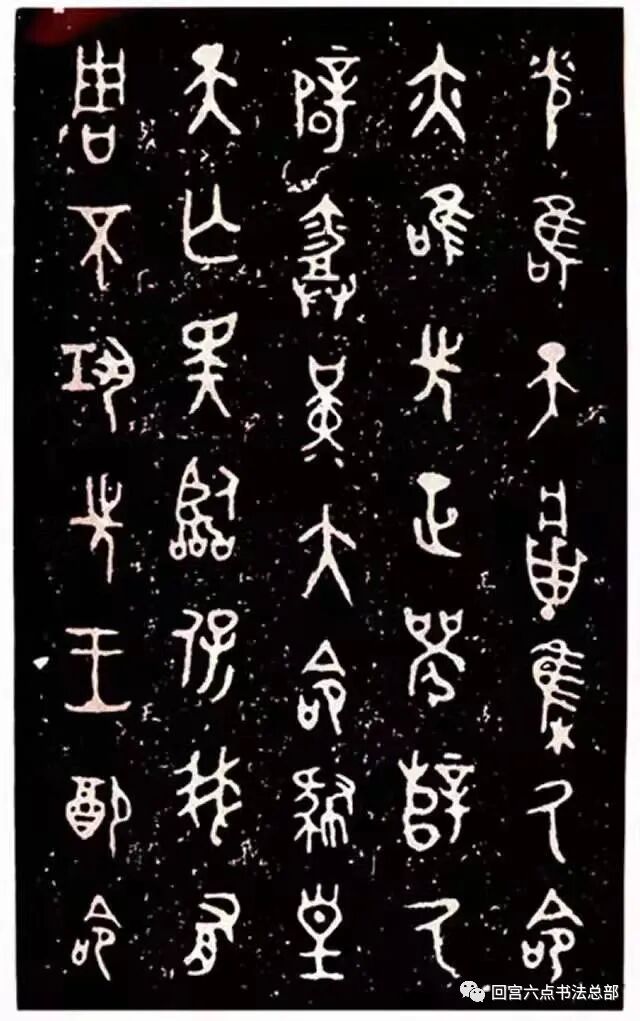 光唯天將集厥命
亦唯先正襄辥厥
辟勞堇大命肆皇
天亡斁臨保我有
周不巩先王配命
回宫六点书法总部